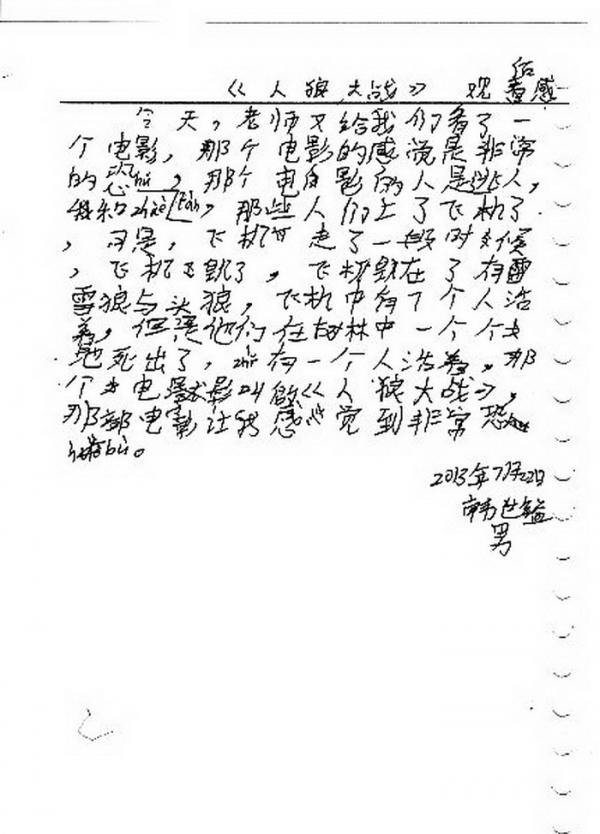 《人狼大战》 观后感
今天，老师又给我们看了一
个电影，那个电影的感觉是非常
的恐，那个电影的人是逃人，
我和，那些人们上了飞机了
，可是，飞机走了一段时候
，飞机飞毁了，飞机毁在了有雷
雪狼与头狼，飞机中有了个人活
着，但是他们在树林中一个个
地死出了，zhi有一个人活着，那
个电影叫做《人狼大战》，
那部电影让我感觉到非常恐
bù。
2013年7月22日
韩世
男